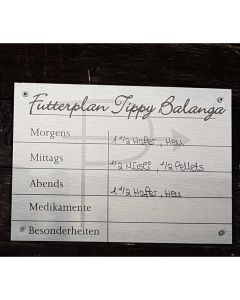 Futterplan Tippy Balanga
Morgens 1 1/2 Hafer, Heu
Mittags 1/2 Müsli, 1/2 Pellets
Abends 1 1/2 Hafer, Heu
Medikamente
Besonderheiten